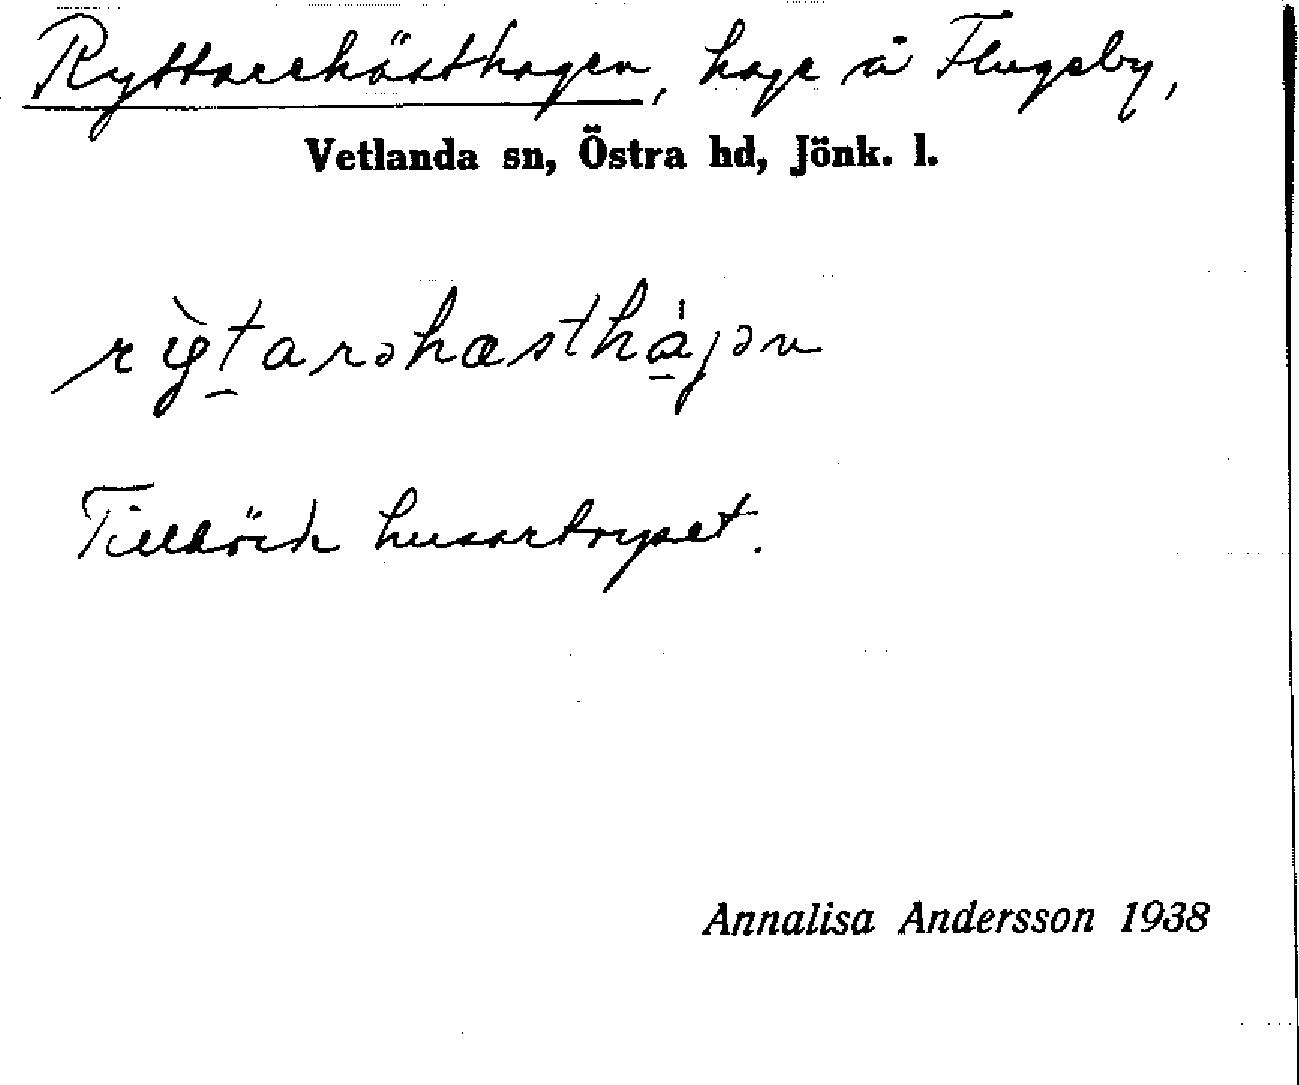 Ryttarehästhagen, hage å Flugeby,
Vetlanda sn, Östra hd, Jönk. l.
rỳtarəhæsthágən
Tillhörde husartorpet.
Annalisa Andersson 1938